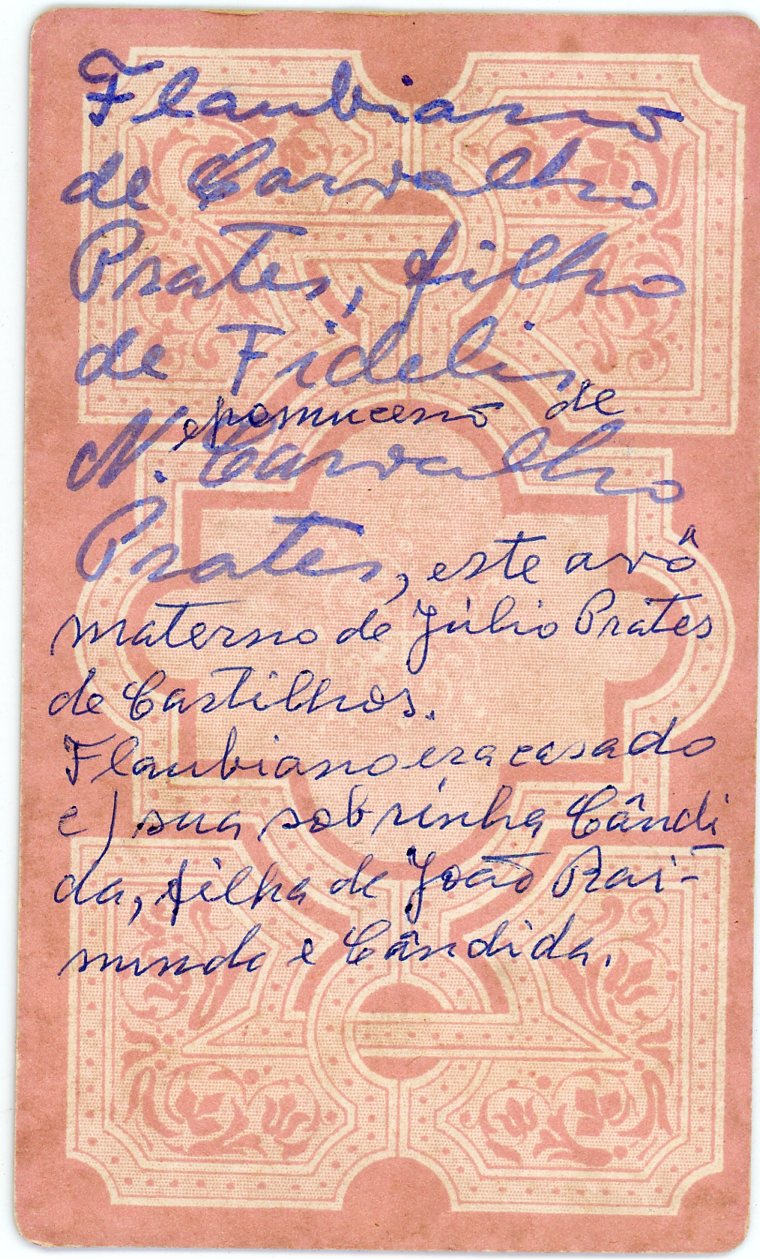 Flaubiano
de Carvalho
Prates, filho
de Fidelis
epomuceno de
N. Carvalho
Prates, este avô
materno de Júlio Prates
de Castilhos.
Flaubiano era casado
c/ sua sobrinha Cândi
da, filha de João Rai-
mundo e Cândida.